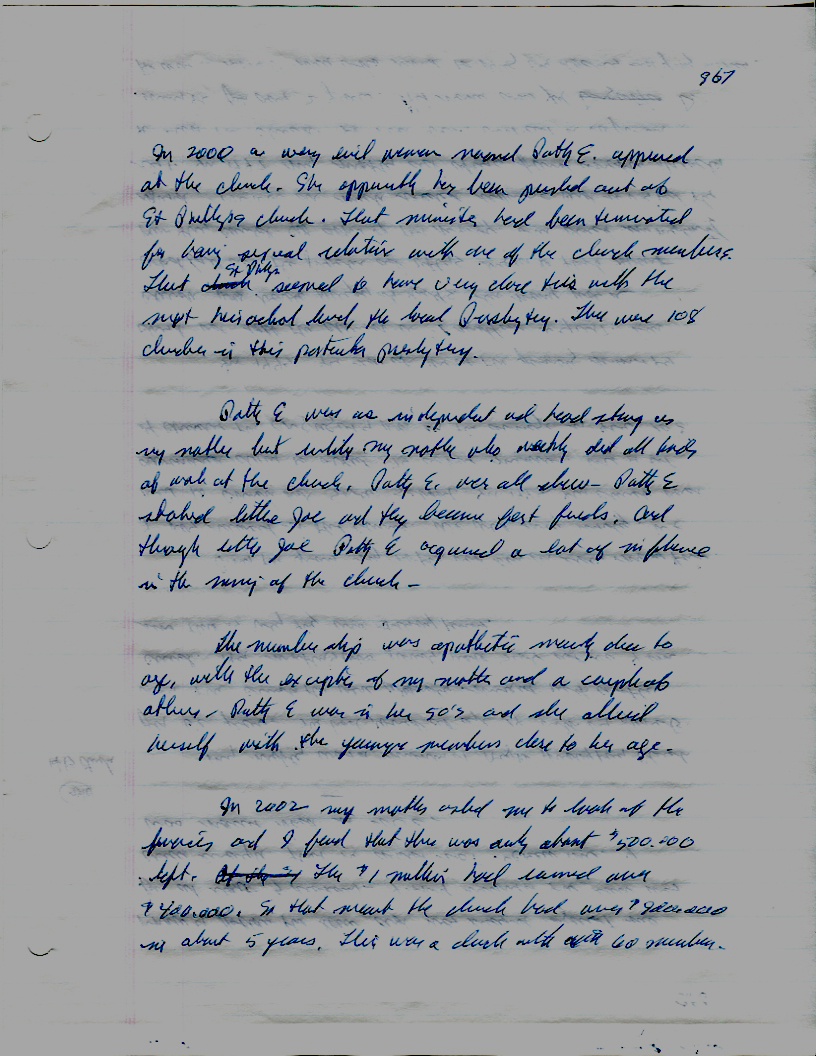 967
In 2000 a very evil woman named Patty E. appeared
at the church. She apparently has been pushed out of
St church. That minister had been terminated
for having sexual relation with one of the church members.
That seemed to have very close ties with the
next level the local Presbytery. There were 108
churches in this particular presbytery.
Patty E was as independent and head strong as
my mother but unlike my mother who did all kinds
of work at the church, Patty E. was all show - Patty E
little Joe and they became fast friends. And
through little Joe Patty E acquired a lot of influence
in the running of the church -
The membership was apathetic mainly due to
age, with the exception of my mother and a couple of
others - Patty E was in her 50's and she allied
herself with the younger members close to her age.
In 2002 my mother asked me to look at the
finances and I found that there was only about $500.000
left. The $1 million had earned over
$400.000. So that meant the church had over $900.000
in about 5 years. This was a church with 60 members.